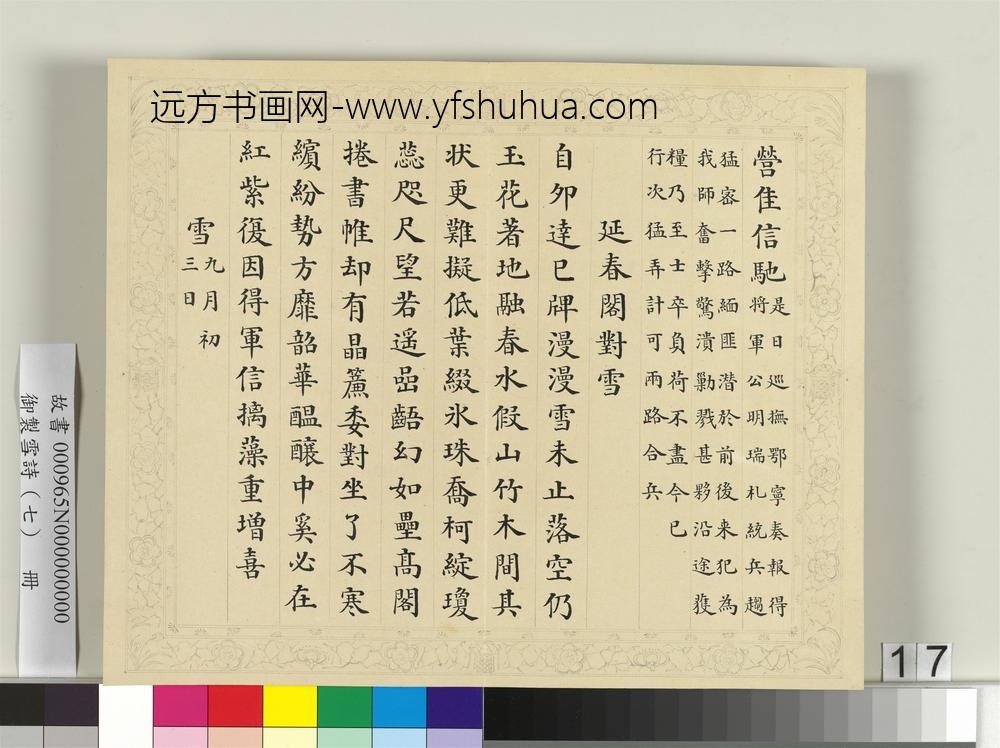 远方书画网-www.yfshuhua.com
營隹信馳是日巡撫鄂寧奏報得
將軍公明瑞札統兵趨
猛密一路緬匪潛於前後来犯為
我師奮擊驚潰勦戮甚夥沿途獲
糧乃至士卒負荷不盡今已
行次猛弄計可兩路合兵
延春閣對雪
自夘達巳牌漫漫雪未止落空仍
玉花著地融春水假山竹木間其
状更難擬低葉綴氷珠喬柯綻瓊
蕊咫尺望若遥嵒齬幻如壘髙閣
捲書帷却有晶簾委對坐了不寒
繽紛勢方靡韶華醖釀中奚必在
紅紫復因得軍信摛藻重增喜
雪九月初
三日
故書 000965N000000000
御製雪詩（七） 冊
17